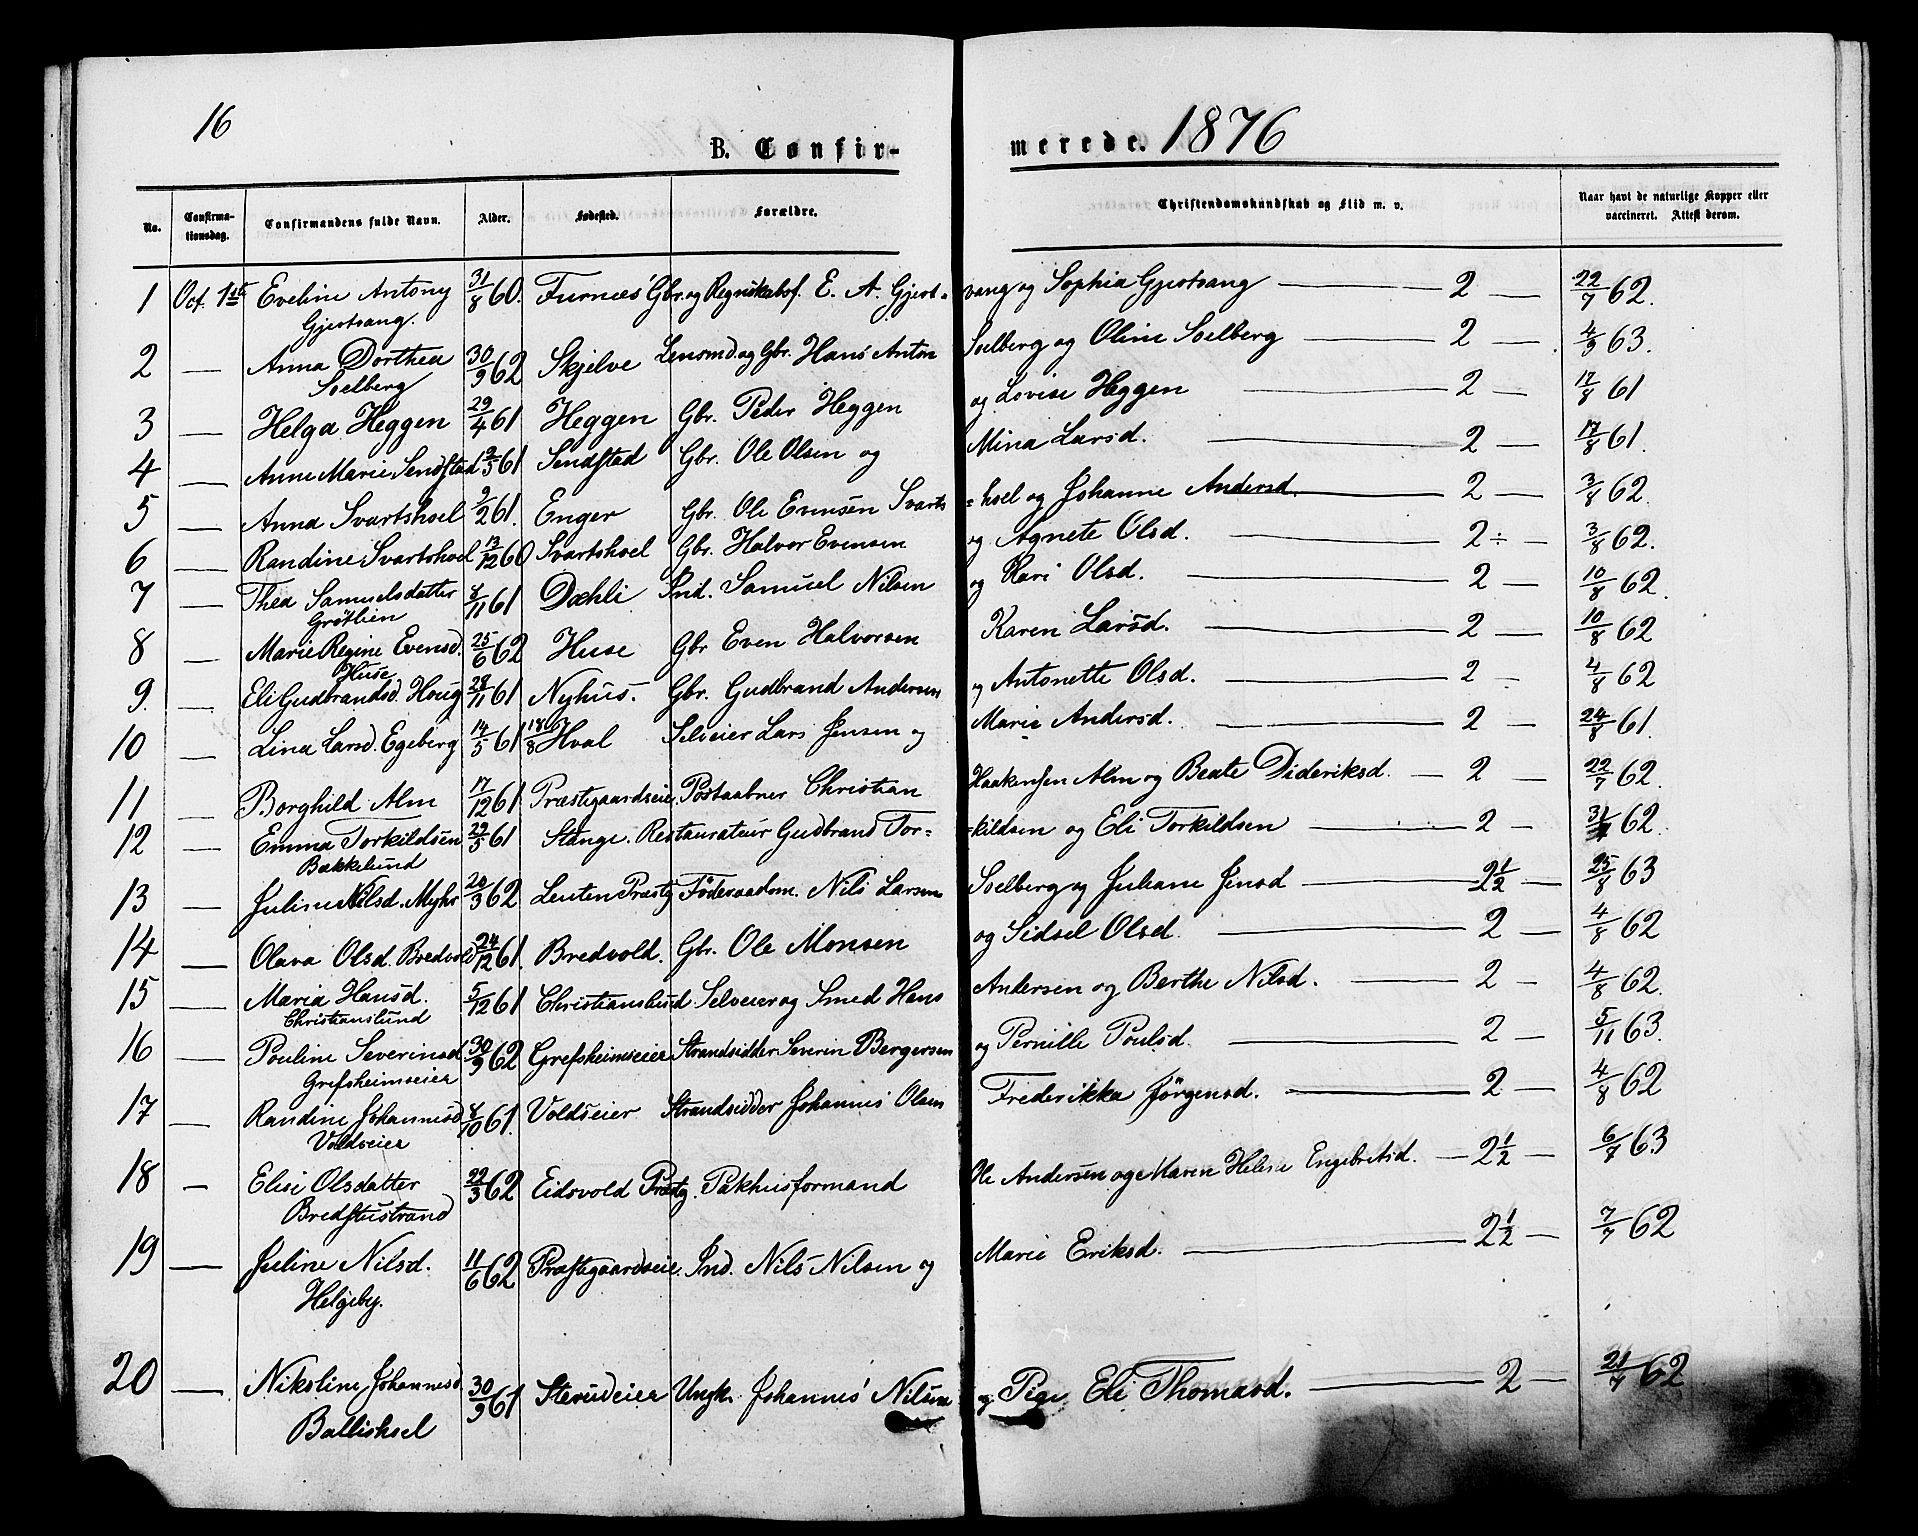 16
B. Confir-
merede. 1876
No. Confirma-tionsdag. Confirmandens fulde Navn. Alder. Fødested. Forældre. Christendomskundskab og Flid m. v. Naar havt de naturlige Kopper eller vaccineret. Attest derom.
1 Oct. 1ste Eveline Antony 31/8 60. Furnæs Gbr. og Regnskabsf. E. A. Gjert- vang og Sophia Gjertvang 2 22/7 62.
Gjertvang.
2 — Anna Dorthea 30/9 62 Skjelve Lensmd. og Gbr. Hans Anton Soelberg og Oline Soelberg 2 4/9 63.
Soelberg
3 — Helga Heggen 29/4 61 Heggen Gbr. Peder Heggen og Lovise Heggen 2 17/8 61
4 — Anne Marie Sendstad 61 Sendstad Gbr. Ole Olsen og Mina Larsd. 2 17/8 61.
5 — Anna Svartshoel 9/2 61. Enger Gbr. Ole Evensen Svarts =hoel og Johanne Andersd. 2 3/8 62.
6 — Randine Svartshoel 13/12 60 Svartshoel Gbr. Halvor Evensen og Agnete Olsd. 2 ÷ 3/8 62.
7 — Thea Samuelsdatter 8/11 61 Dæhli Ind. Samuel Nilsen og Kari Olsd. 2 10/8 62.
Grøtlien
8 — Marie Regine Evensd. 25/6 62 Huse Gbr Even Halvorsen Karen Larsd. 2 10/8 62
Huse
9. — Eli Gudbrandsd. Houg 28/11 61 Nyhus. Gbr. Gudbrand Andersen og Antonette Olsd. 2 4/8 62
10 — Lina Larsd. Egeberg 14/5 61 18/8 Hval Selveier Lars Jensen og Marie Andersd. 2 24/8 61.
11 — Borghild Alm 17/12 61 Præstegaardseie Postaabner Christian Haakensen Alm og Beate Dideriksd. 2 22/7 62.
12 — Emma Torkildsen 61 Stange. Restaurateur Gudbrand Tor= =kildsen og Eli Torkildsen 2 62.
Bækkelund
13 — Juline Nilsd. Myhr 20/3 62 Leuten Præstg. Föderaadsm. Nils Larsen Soelberg og Juliane Jensd 2 1/2 25/8 63
14 — Olava Olsd. Bredvold 24/12 61. Bredvold. Gbr. Ole Monsen og Sidsel Olsd. 2 4/8 62
15 — Maria Hansd. 5/12 61 Christianslund. Selveier og Smed Hans Andersen og Berthe Nilsd. 2 4/8 62.
Christianslund
16 — Pouline Severinsd 30/9 62 Grefsheimseier Strandsidder Severin Bergersen og Pernille Poulsd. 2 5/11 63.
Grefsheimseier
17 — Randine Johannesd 8/10 61. Voldseier Strandsidder Johannes Olsen Frederikka Jørgensd. 2 4/8 62
Voldseier
18 — Elise Olsdatter 22/3 62 Eidsvold Præstg. Pakhusformand Ole Andersen og Maren Helene Engebretsd. 2 1/2 6/7 63
Bredstustrand
19 — Juline Nilsd. 11/6 62 Præstegaardseie. Ind. Nils Nilsen og Marie Eriksd. 2 1/2 7/7 62
Helgeby.
20 — Nikoline Johannesd 30/9 61 Sterudeier Ungk. Johannes Nilsen og Pige Eli Thomasd. 2 21/7 62
Ballishoel